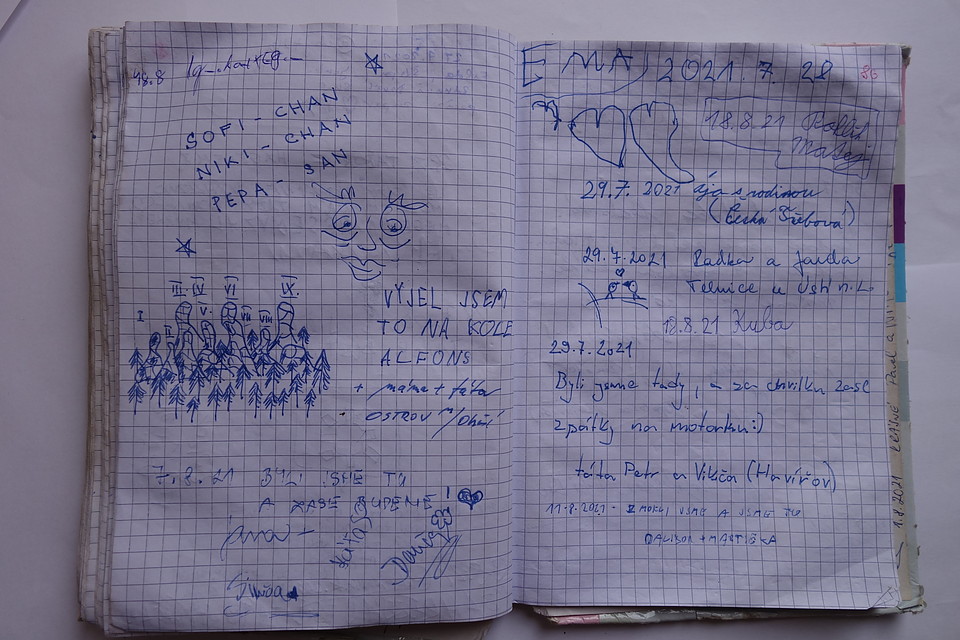 18.8
SOFI - CHAN
NIKI - CHAN
PEPA - SAN
I
II
III
IV
V.
VI
VII
VIII
IX.
VYJEL JSEM
TO NA KOLE
ALFONS
+ máma + táta
OSTROV
7.8.21 BYLI JSME TU
A ZASE BUDEME!
Jana +
EMA, 2021. 7. 28
86
18.8.21
Matěj
29.7. 2021 s rodinou
(Česká Třebová)
29.7.2021 Radka a Jarda
Telnice u Ústí n.L.
18.8.21 Kuba
29.7.2021
Byli jsme tady, a za chvilku zase
zpátky na motorku:)
táta Petr a Vikča (Havířov)
11.8.2021 - JSME A JSME TU
DALIBOR + MARTIČKA
1.8.2021